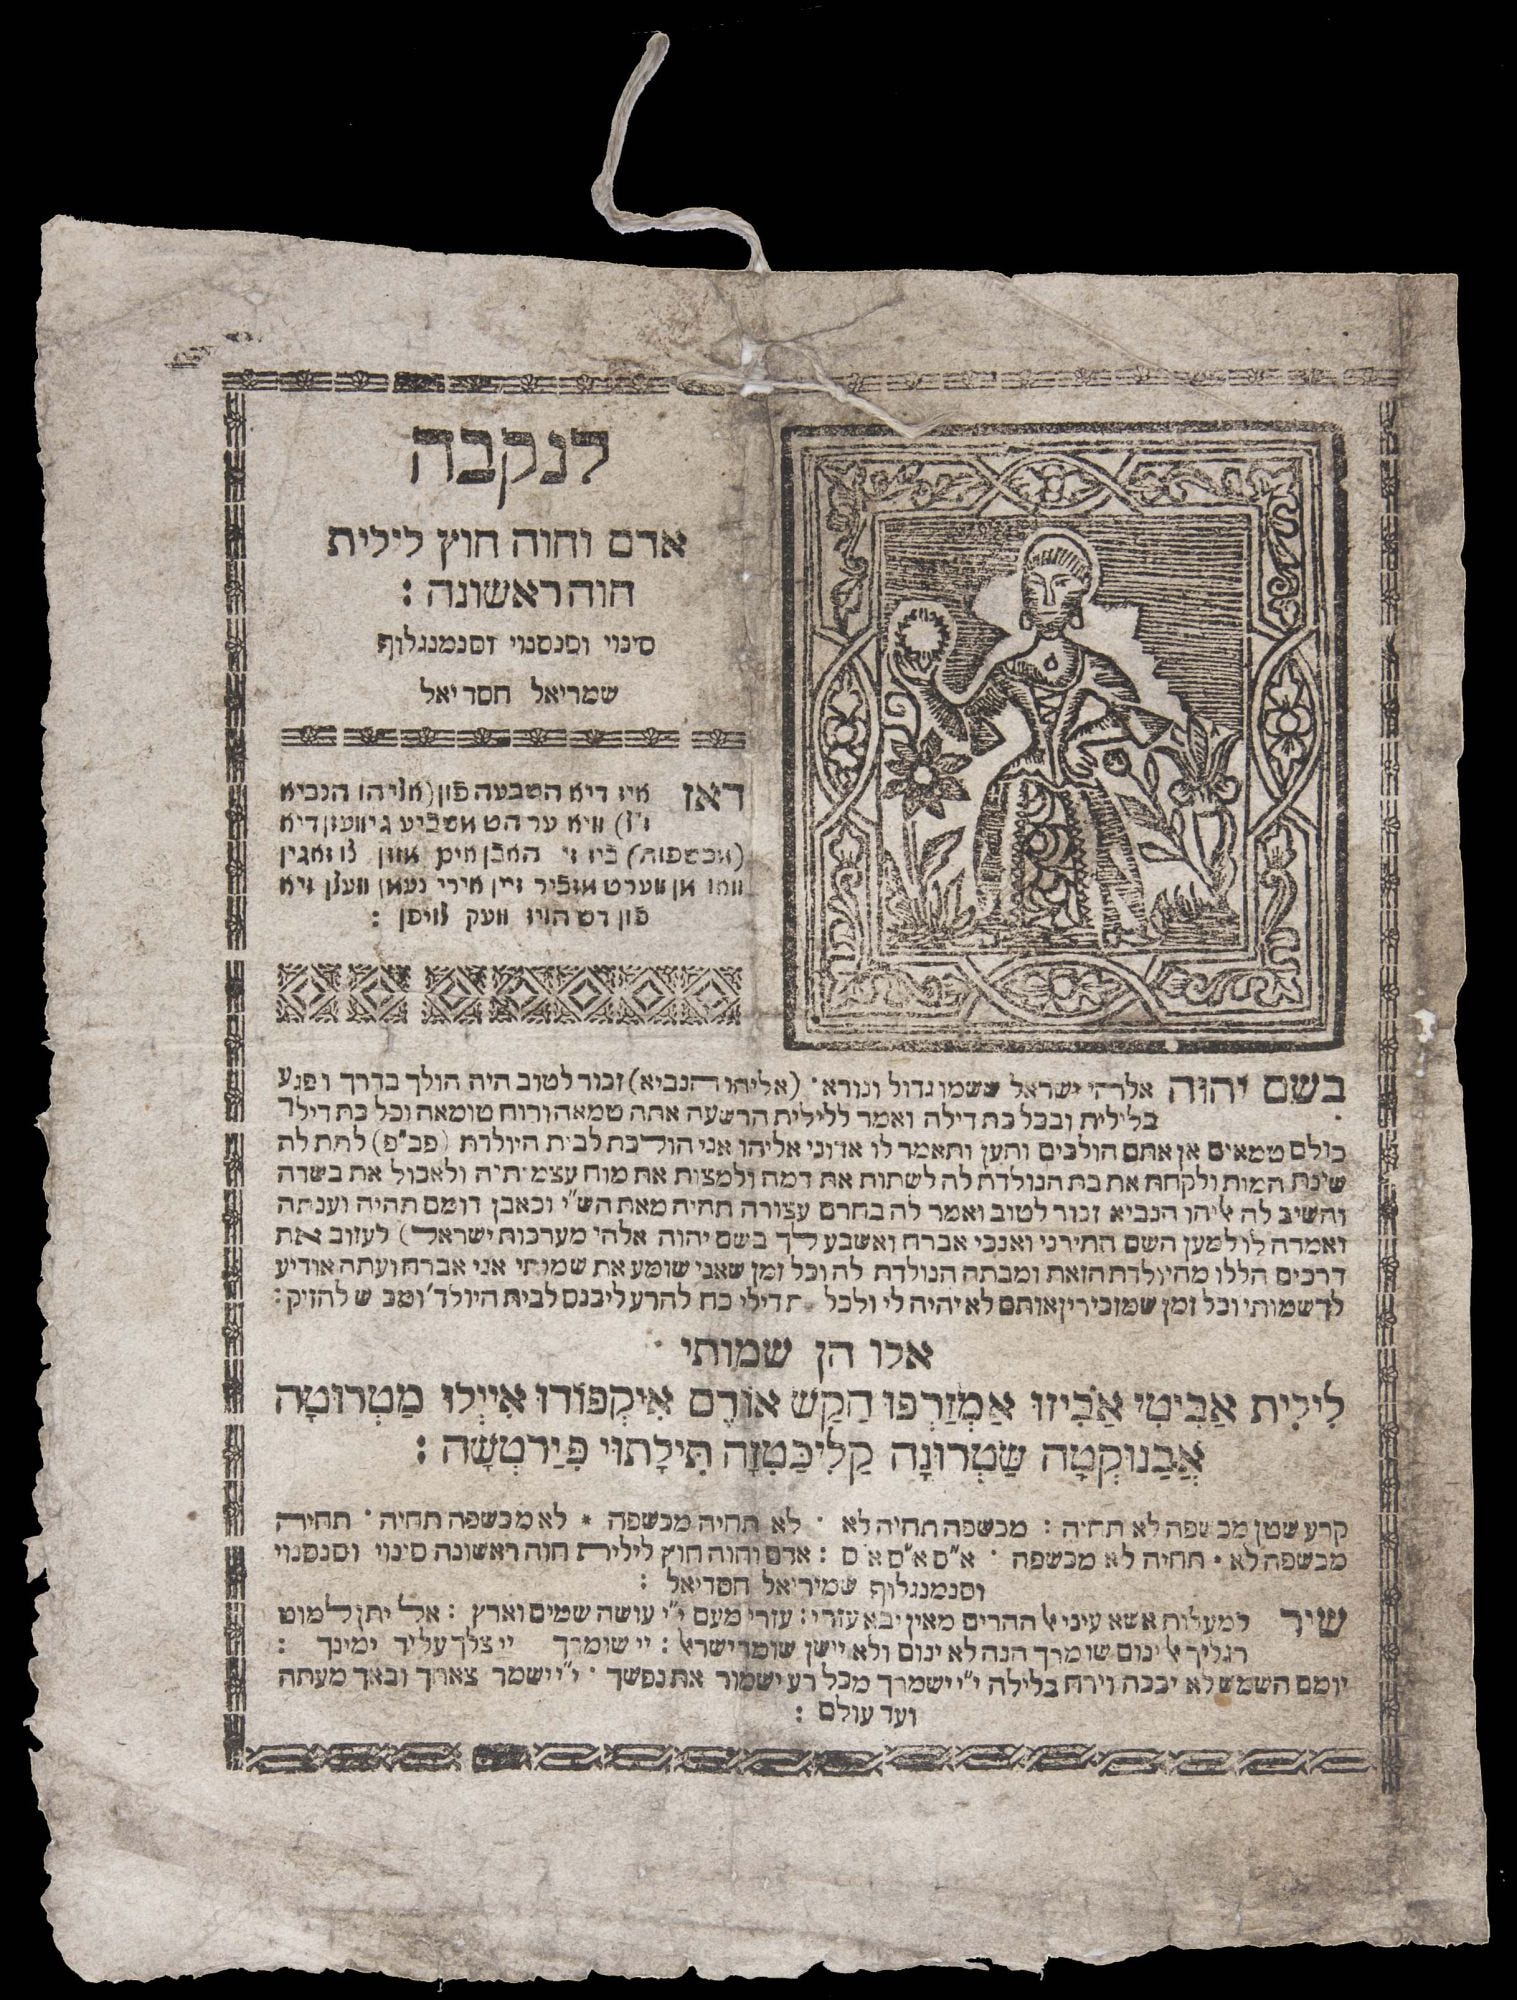 לנקבה
אדם וחוה חוץ לילית
חוה ראשונה :
סינוי וסנסנוי וסנמנגלוף
שמריאל חסדיאל
דאז איז דיא השבעה פון (אליהו הנביא
ז"ל) וויא ער הט משביע גיוועזן דיא
(מכשפות) ביז זי האבן אים מוזן צו זאגין
וואו מן ווערט אופיר זיין אירי נעמן וועלן זיא
פון דט הויז וועק לויפן :
בשם יהוה אלהי ישראל ששמו גדול ונורא · (אליהו הנביא) זכור לטוב היה הולך בדרך ופגע
בלילית ובכל כת דילה ואמר ללילית הרשעה אתה טמאה ורוח טומאה וכל כת דילך
כולם טמאים אן אתם הולכים ותען ותאמר לו אדוני אליהו אני הולכת לבית היולדת (פב"פ) לתת לה
שינת המות ולקחת את בת הנולדת לה לשתות את דמה ולמצות את מוח עצמותיה ולאכול את בשרה
והשיב לה אליהו הנביא זכור לטוב ואמר לה בחרם עצורה תהיה מאת הש"י וכאבן דומם תהיה וענתה
ואמרה לו למען השם התירני ואנכי אברח ואשבע לך בשם יהוה אלהי מערכות ישראל) לעזוב את
דרכים הללו מהיולדת הזאת ומבתה הנולדת לה וכל זמן שאני שומע את שמותי אני אברח ועתה אודיע
לך שמותי וכל זמן שמזכירין אותם לא יהיה לי ולכל כת דילי כח להרע ליכנס לבית היולד' ומכ"ש להזיק :
אלו הן שמותי ·
לִילִית אַבִּיטִי אַבִּיזוּ אַמְזַרְפּוּ הַקַשׁ אוֹרֶם אִיקְפּוֹדוּ אִיְילוּ מַטְרוּטָה
אֲבַנוּקְטָה שַׁטְרוּנָה קַלִיכַּטָזָה תִּילָתוּי פִּיַרְטְשָׁה :
קרע שטן מכשפה לא תחיה : מכשפה תחיה לא · לא תחיה מכשפה * לא מכשפה תחיה · תחיה
מכשפה לא · תחיה לא מכשפה · א"ם א"ם א"ם : אדם וחוה חוץ לילית חוה ראשונה סינוי וסנסנוי
וסנמנגלוף שמיריאל חסדיאל :
שיר למעלות אשא עיני אל ההרים מאין יבא עזרי : עזרי מעם י"י עושה שמים וארץ : אל יתן למוט
רגליך אל ינום שומרך הנה לא ינום ולא יישן שומר ישראל : יי שומרך יי צלך על יד ימינך :
יומם השמש לא יככה וירח בלילה י"י ישמרך מכל רע ישמור את נפשך · י"י ישמר צאתך ובאך מעתה
ועד עולם :